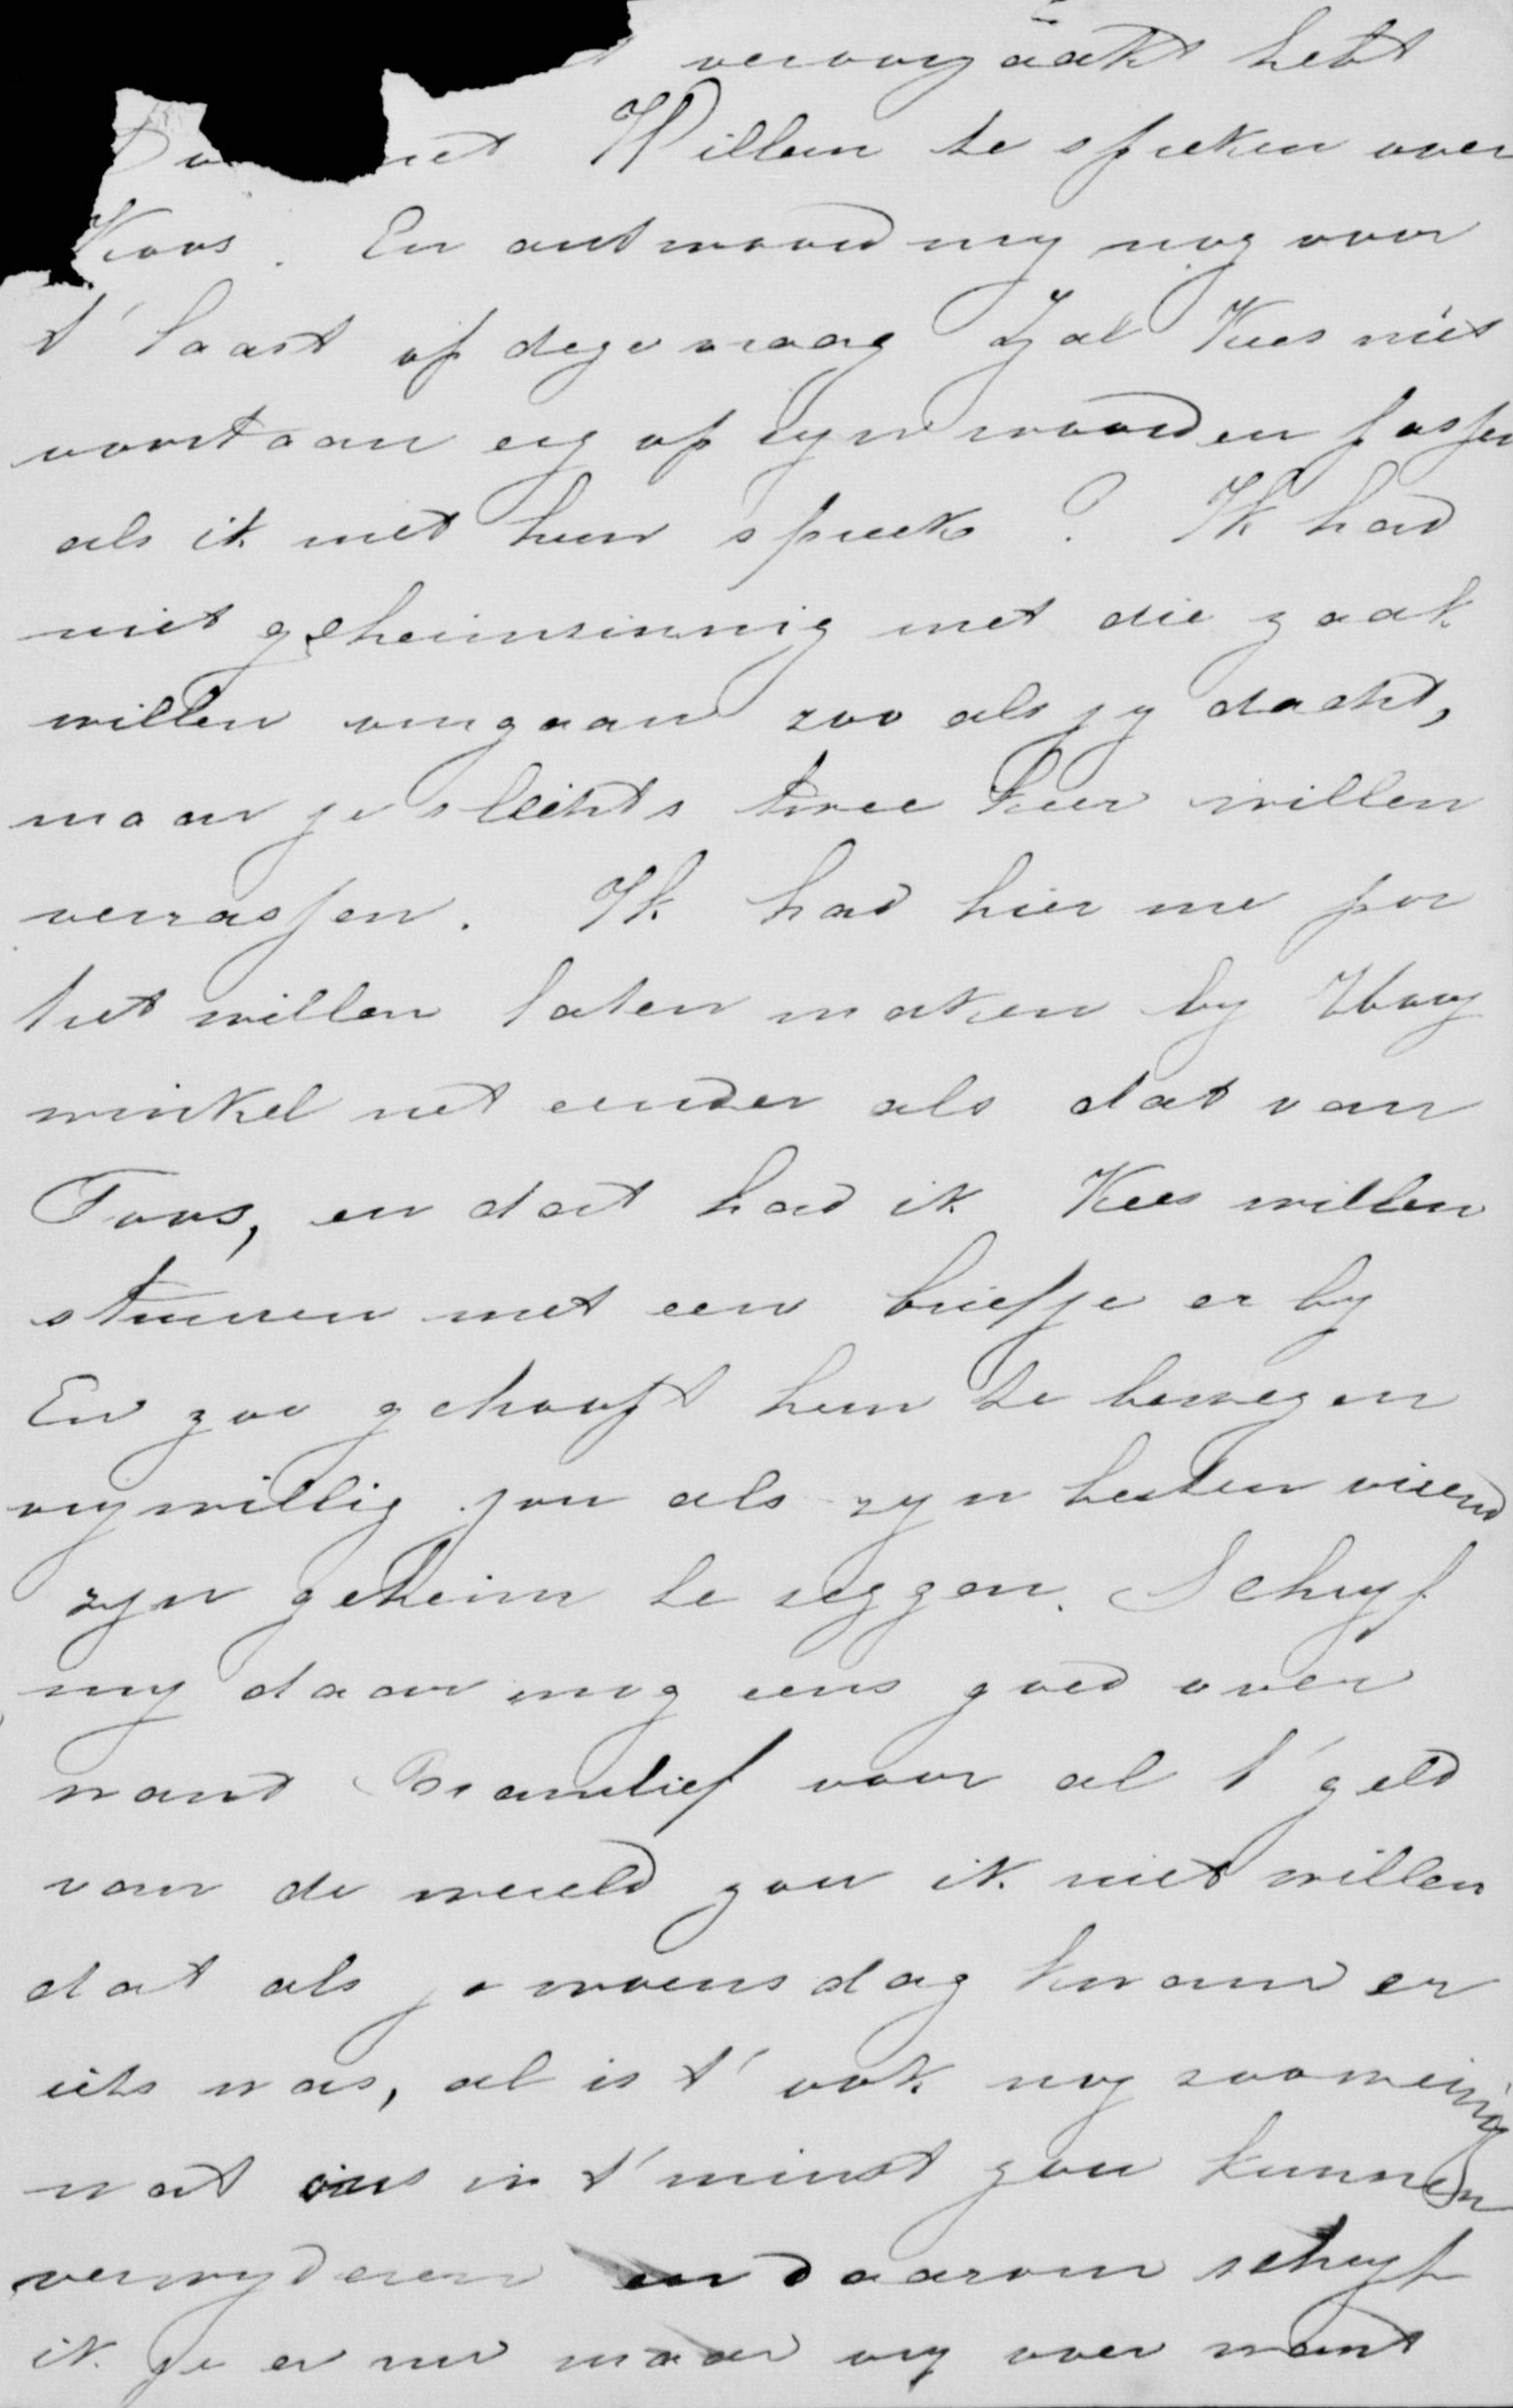 veroorzaakt hebt
met Willem te spreken over
Koos. En antwoord my nog voor
t' laast op deze vraag Zal Kees niet
voortaan erg op zyn woorden passen
als ik met hem spreek? Ik had
niet geheimzinnig met die zaak
willen omgaan zoo als jy dacht,
maar je slechts twee keer willen
verrassen. Ik had hier me por
tret willen laten maken by Hooy
winkel net eender als dat van
Toos, en dat had ik Kees willen
sturen met een briefje er by
En zoo gehoopt hem te bewegen
vrywillig jou als zyn besten vriend
zyn geheim te zeggen. Schryf
my daar nog eens goed over
want Bramlief voor al t' geld
van de wereld zou ik niet willen
dat als je woensdag kwam er
iets was, al is t' ook nog zoo weinig
wat ons in t' minst zou kunnen
verwyderen en daarom schryf
ik je er nu maar vry over want